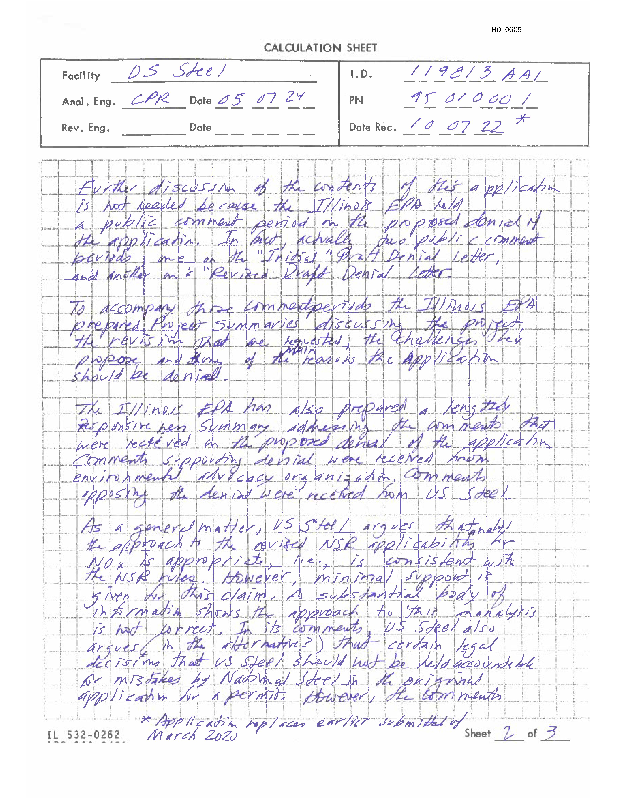 HO 0605
CALCULATION SHEET
Facility US Steel
I.D. 119813 AAI
Anal. Eng. CPR Date 05 07 24
PN 95 01 0001
Rev. Eng. Date
Date Rec. 10 07 22 *
Further discussion of the contents of this application
is not needed because the Illinois EPA held
a public comment period on the proposed denial of
the application. In fact, actually two public comment
periods, one on the "Initial" Draft Denial Letter,
and another on a "Revised Draft Denial Letter
To accompany those comment periods the Illinois EPA
prepared Project Summaries discussing the project,
the revision that are requested, the challenge they
propose and of the main reasons the Application
should be denied.
The Illinois EPA has also prepared a lengthy
Responsiveness Summary addressing the comments that
were received on the proposed denial of the application
Comments supporting denial were received from
environmental advocacy organization, Comments
opposing the denial were received from US Steel
As a general matter, US Steel argues that
the approach to the revised NSR applicability for
NOx is appropriate, i.e., is consistent with
the NSR rules. However, minimal support is
given for this claim. A substantial body of
information shows the approach to this analysis
is not correct. In its comments, US Steel also
argues (in the alternative) that certain legal
decisions that US Steel should not be held accountable
for mistakes by National Steel in the original
application for a permit. However, the comments
* Application replaces earlier submittal of
March 2020
IL 532-0262
Sheet 2 of 3